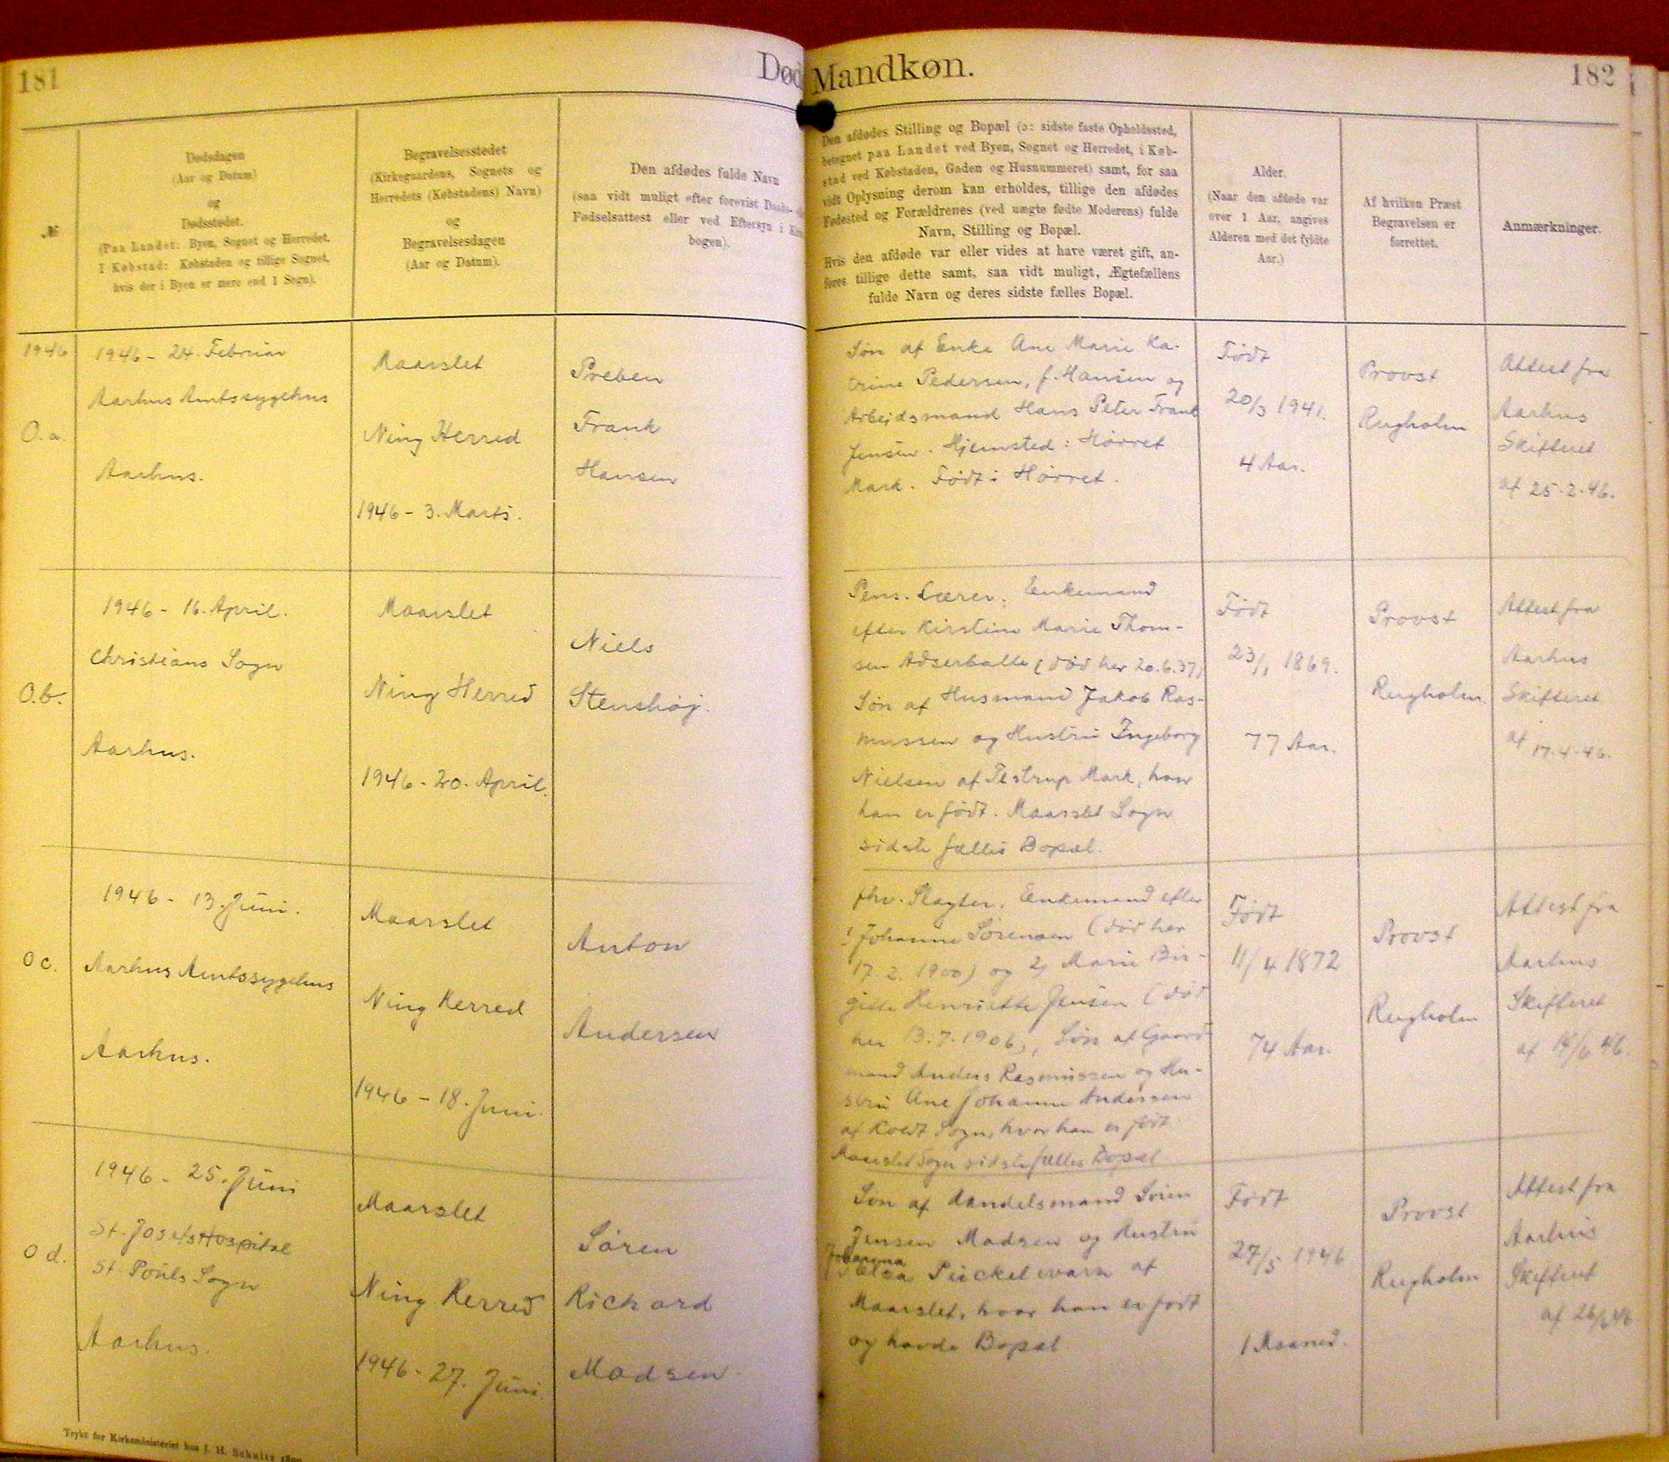 181
Død
Mandkøn.
182
№
Dødsdagen
(Aar og Datum)
og
Dødsstedet.
(Paa Landet: Byen, Sognet og Herredet.
I Købstad: Købstaden og tillige Sognet,
hvis der i Byen er mere end 1 Sogn).
Begravelsesstedet
(Kirkegaardens, Sognets og
Herredets (Købstadens) Navn)
og
Begravelsesdagen
(Aar og Datum).
Den afdødes fulde Navn
(saa vidt muligt efter forevist
Fødselsattest eller ved Eftersyn i
bogen).
Den afdødes Stilling og Bopæl (ɔ: sidste faste Opholdssted,
betegnet paa Landet ved Byen, Sognet og Herredet, i Køb-
stad ved Købstaden, Gaden og Husnummeret) samt, for saa
vidt Oplysning derom kan erholdes, tillige den afdødes
Fødested og Forældrenes (ved uægte fødte Moderens) fulde
Navn, Stilling og Bopæl.
Hvis den afdøde var eller vides at have været gift, an-
føres tillige dette samt, saa vidt muligt, Ægtefællens
fulde Navn og deres sidste fælles Bopæl.
Alder.
(Naar den afdøde var
over 1 Aar, angives
Alderen med det fyldte
Aar.)
Af hvilken Præst
Begravelsen er
forrettet.
Anmærkninger.
1946
O.a.
1946 - 24. Februar
Aarhus Amtssygehus
Aarhus.
Maarslet
Ning Herred
1946 - 3. Marts.
Preben
Frank
Hansen
Søn af Enke Ane Marie Ka-
trine Pedersen, f. Hansen og
Arbejdsmand Hans Peter Frank
Jensen. Hjemsted: Hørret
Mark. Født i Hørret.
Født
20/3 1941.
4 Aar.
Provst
Rugholm
Attest fra
Aarhus
Skifteret
af 25-2-46.
O.b.
1946 - 16. April.
Christians Sogn
Aarhus.
Maarslet
Ning Herred
1946 - 20. April.
Niels
Stenshøj.
Pens. Lærer, Enkemand
efter Kirstine Marie Thom-
sen Adserballe (død her 20.6.37)
Søn af Husmand Jakob Ras-
mussen og Hustru Ingeborg
Nielsen af Testrup Mark, hvor
han er født. Maarslet Sogn
sidste fælles Bopæl.
Født
23/1 1869.
77 Aar.
Provst
Rugholm.
Attest fra
Aarhus
Skifteret
af 17-4-46.
O c.
1946 - 13. Juni.
Aarhus Amtssygehus
Aarhus.
Maarslet
Ning Herred
1946 - 18. Juni.
Anton
Andersen
fhv. Slagter. Enkemand efter
1) Johanne Sørensen (død her
17.2.1900) og 2) Marie Bir-
gitte Henriette Jensen (død
her 13.7.1906), Søn af Gaard-
mand Anders Rasmussen og Hu-
stru Ane Johanne Andersen
af Koldt Sogn, hvor han er født.
Maarslet Sogn sidste fælles Bopæl
Født
11/4 1872
74 Aar.
Provst
Rugholm
Attest fra
Aarhus
Skifteret
af 14/6 46.
O d.
1946 - 25. Juni
St. Josefs Hospital
St. Pouls Sogn
Aarhus.
Maarslet
Ning Herred
1946 - 27. Juni.
Søren
Richard
Madsen
Søn af Handelsmand Søren
Jensen Madsen og Hustru
Johanna
af
Maarslet, hvor han er født
og havde Bopæl
Født
27/5 1946
1 Maaned.
Provst
Rugholm
Attest fra
Aarhus
Skifteret
af 26/6 46
Trykt for Kirkeministeriet hos J. H. Schultz